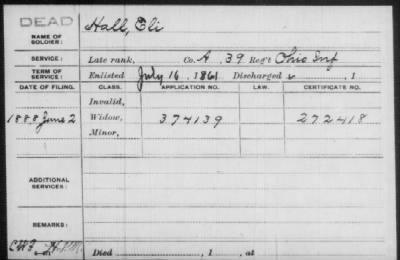 DEAD
NAME OF SOLDIER: Hall, Eli
SERVICE: Late rank, Co. A, 39 Reg't Ohio Inf
TERM OF SERVICE: Enlisted July 16, 1861 Discharged , 1
DATE OF FILING. CLASS. APPLICATION NO. LAW. CERTIFICATE NO.
Invalid,
1888 June 2 Widow, 374139 272418
Minor,
ADDITIONAL SERVICES:
REMARKS:
Died , 1 , at